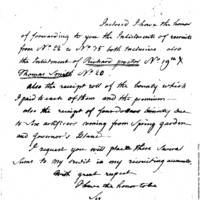 Inclosed I have the honor
of forwarding to you the Inlistments of recruits
from No. 22 to No. 35 both Inclusive. also
the Inlistment of Richard proctor No. 19th &
Thomas Smith No. 20.
Also the receipt roll of the bounty which
I paid to each of them and the premium —
also the receipt of bounty due
to Six artificers coming from Spring garden
and Governor's Island —
I request you will place these Several
Sums to my credit in my recruiting account.
With great respect
I have the honor to be
Sir